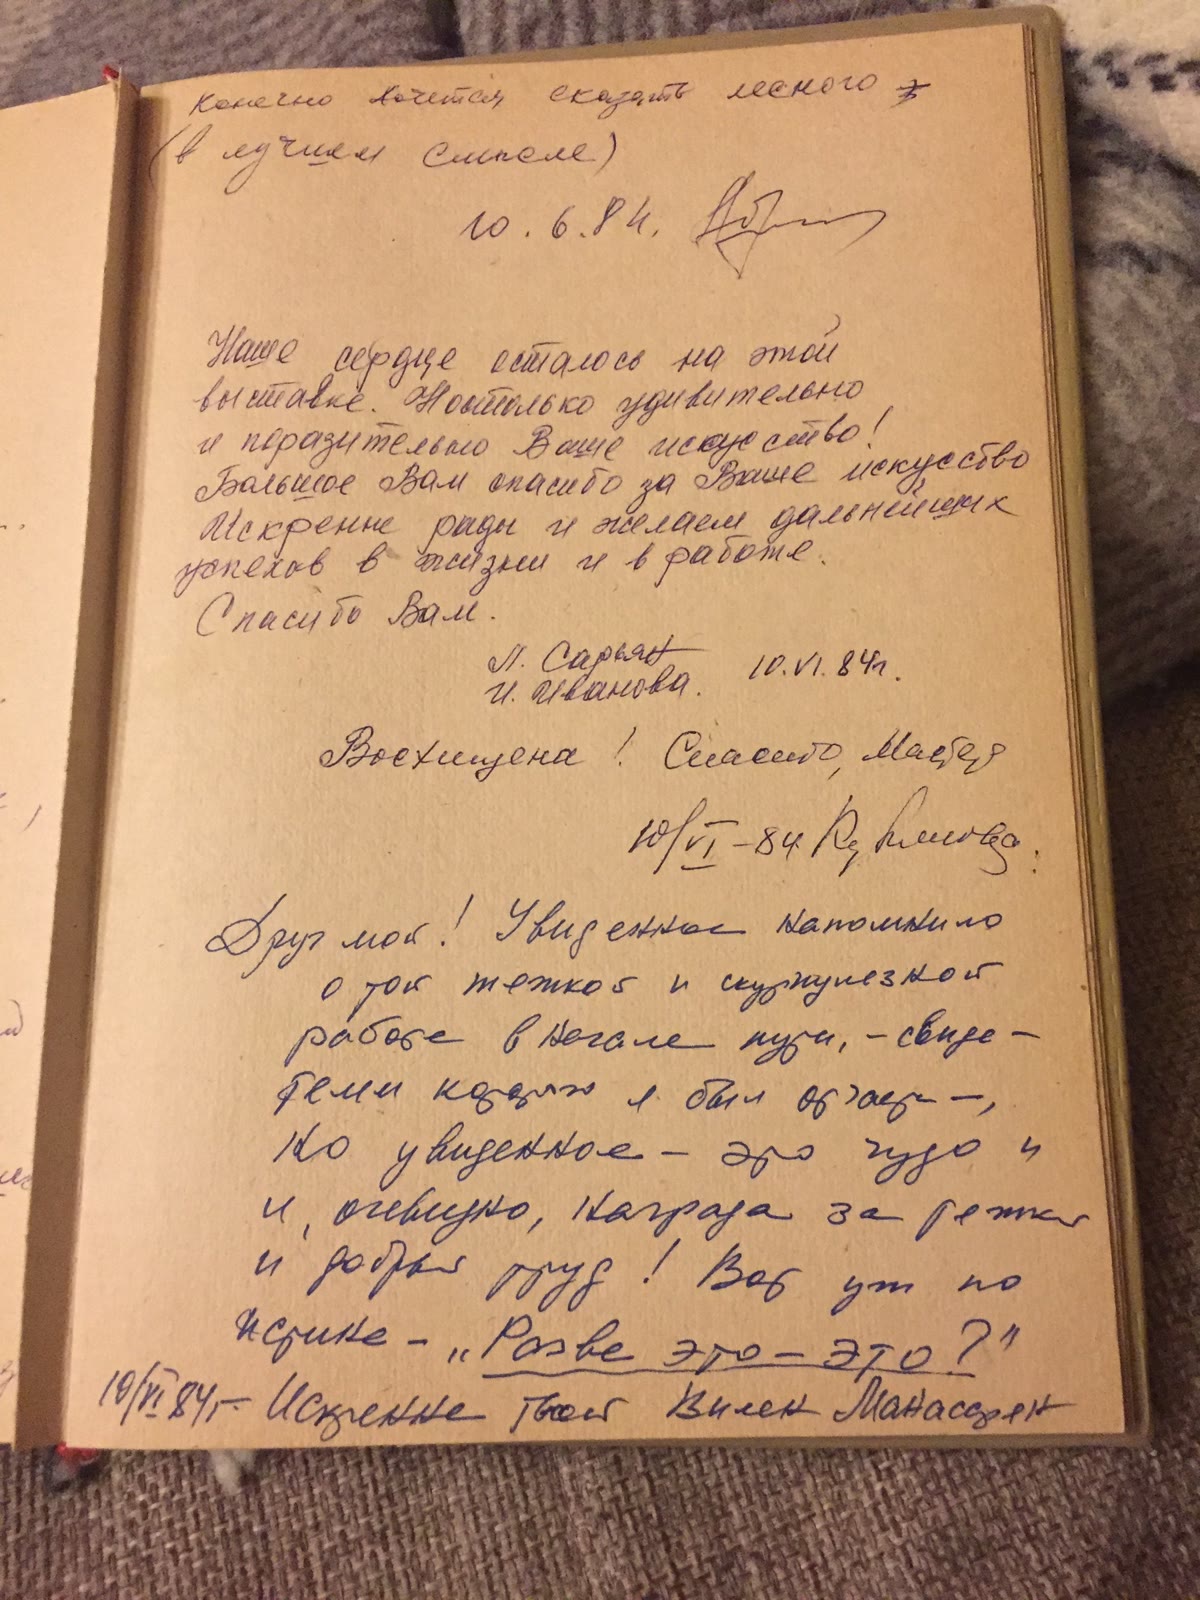 Конечно хочется сказать много
(в лучшем смысле)
10.6.84.
Наше сердце осталось на этой
выставке. Настолько удивительно
и поразительно Ваше искусство!
Большое Вам спасибо за Ваше искусство
Искренне рады и желаем дальнейших
успехов в жизни и в работе.
Спасибо Вам.
Л. Сарьян 10.VI.84г.
И. Иванова.
Восхищена! Спасибо, Мастер
10/VI-84
Друг мой! Увиденное напомнило
о той тяжкой и скурпулезной
работе в начале пути, - свиде-
телем которых я был отчасти -,
но увиденное - это чудо и
и, очевидно, награда за тяжкий
и добрый труд! Вот уж по
истине - „Разве это - это?"
10/VI 84г. - Искренне твой Вилен Манасерян